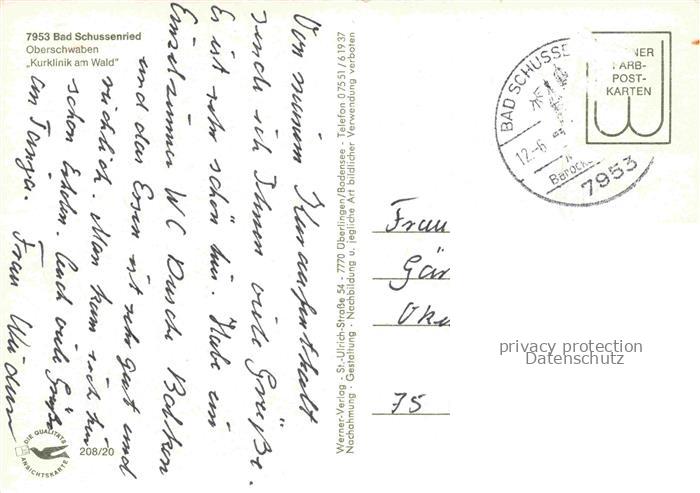 7953 Bad Schussenried
Oberschwaben
„Kurklinik am Wald“
Von meinem Kuraufenthalt
sende ich Ihnen viele Grüße.
Es ist sehr schön hier. Habe ein
Einzelzimmer WC Dusche Balkon
und das Essen ist sehr gut und
reichlich. Man kann sich hier
schon erholn. Auch viele Grüße
an Tanja. Frau
DIE QUALITÄTS
ANSICHTSKARTE
208/20
Werner-Verlag - St.-Ulrich-Straße 54 - 7770 Überlingen/Bodensee - Telefon 07551/61937
Nachahmung - Gestaltung - Nachbildung u. jegliche Art bildlicher Verwendung verboten
BAD SCHUSSE
12.-6
Barock
7953
NER
FARB-
POST-
KARTEN
Frau
Gär
75
privacy protection
Datenschutz